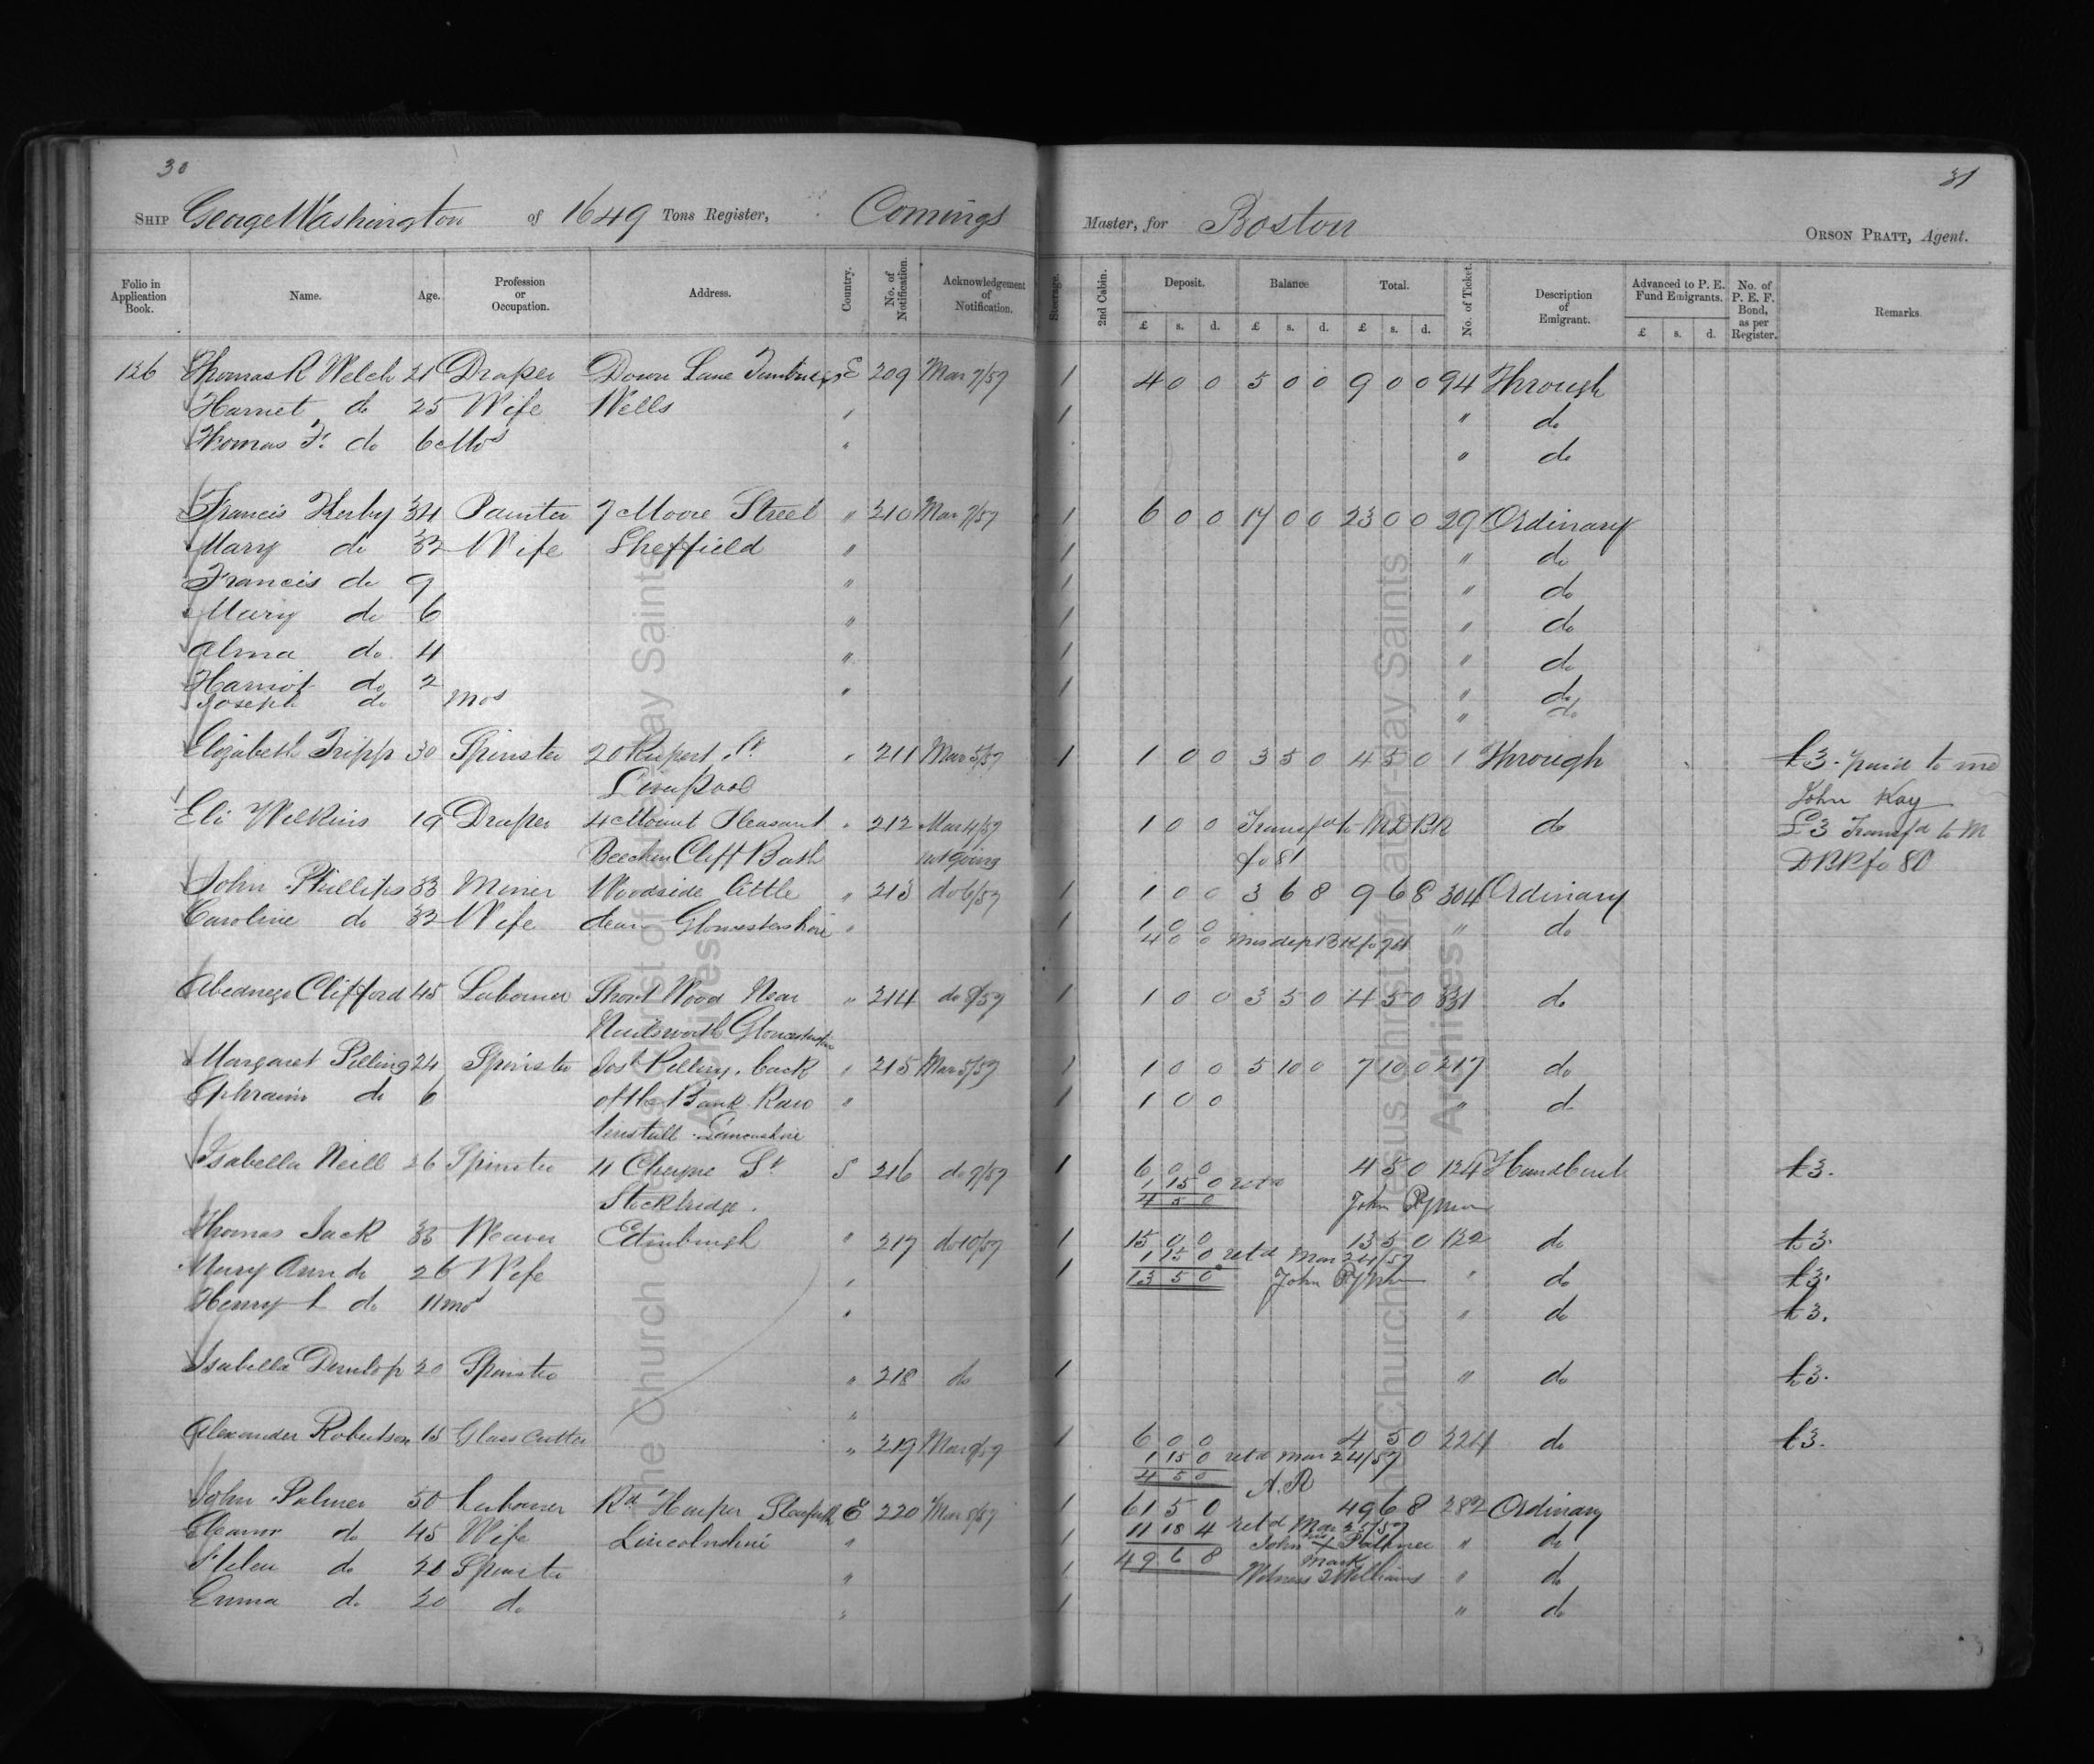 30
31
SHIP George Washington of 1649 Tons Register, Comings Master, for Boston ORSON PRATT, Agent.
Folio in Application Book. Name. Age. Profession or Occupation. Address. Country. No. of Notification. Acknowledgement of Notification. Steerage. 2nd Cabin. Deposit. Balance Total. No. of Ticket. Description of Emigrant. Advanced to P. E. Fund Emigrants. No. of P. E. F. Bond, as per Register. Remarks
£ s. d. £ s. d. £ s. d. £ s. d.
126 Thomas R Welch 21 Draper Down Lane E 209 Mar 7/57 1 4 0 0 5 0 0 9 0 0 94 Through
Harriet do 25 Wife Wells " 1 " do
Thomas F. do 6 Mos " " do
Francis Kerby 34 Painter 7 Moore Street " 210 Mar 7/57 1 6 0 0 17 0 0 23 0 0 29 Ordinary
Mary do 32 Wife Sheffield " 1 " do
Francis do 9 " 1 " do
Mary do 6 " 1 " do
Alma do 4 " 1 " do
Harriot do 2 " 1 " do
Joseph do mos " do
Elizabeth Tripp 30 Spinster 20 Rupert St " 211 Mar 5/57 1 1 0 0 3 5 0 4 5 0 1 Through £3. paid to me
Liverpool John Kay
Eli Wilkins 19 Draper 4 Mount Pleasant " 212 Mar 4/57 1 0 0 Transfd to M D BK do £3 Transfd to M
Beechen Cliff Bath not going fo 81 D BK fo 80
John Phillips 33 Miner Woodside Little " 213 do 6/57 1 1 0 0 3 6 8 9 6 8 304 Ordinary
Caroline do 32 Wife dean Gloucestershire " 1 1 0 0 " do
4 0 0 Mis dep BK fo
Abednego Clifford 45 Labourer Short Wood Near " 214 do 9/57 1 1 0 0 3 5 0 4 5 0 331 do
Nailsworth Gloucestershire
Margaret Pilling 24 Spinster Josh Pilling, back " 215 Mar 5/57 1 1 0 0 5 10 0 7 10 0 217 do
Ephraim do 6 of the Bank Raw " 1 1 0 0 " do
tinstall Lancashire
Isabella Neill 26 Spinster 11 Cheyne St S 216 do 9/57 1 6 0 0 4 5 0 124 Handcart £3.
1 15 0 retd
Stockbridge. 4 5 0 John Rymer
Thomas Jack 33 Weaver Edinburgh " 217 do 10/57 1 15 0 0 13 5 0 122 do £3.
1 15 0 retd Mar 24/57
Mary Ann do 26 Wife " 1 13 5 0 John Rymer " do £3.
Henry L do 11 mos " " do £3.
Isabella Dunlop 20 Spinster " 218 do 1 " do £3.
"
Alexander Robertson 15 Glass Cutter " 219 Mar 9/57 1 6 0 0 4 5 0 224 do £3.
1 15 0 retd Mar 24/57
4 5 0 A. R
John Palmer 50 Labourer Rd Harper Sleaford E 220 Mar 8/57 1 61 5 0 49 6 8 282 Ordinary
11 18 4 retd Mar 25/57
Eleanor do 45 Wife Lincolnshire " 1 John his X Palmer " do
49 6 8 mark
Helen do 21 Spinster " 1 Witness J Williams " do
Emma do 20 do " 1 " do
The Church of Jesus Christ of Latter-day Saints
Archives